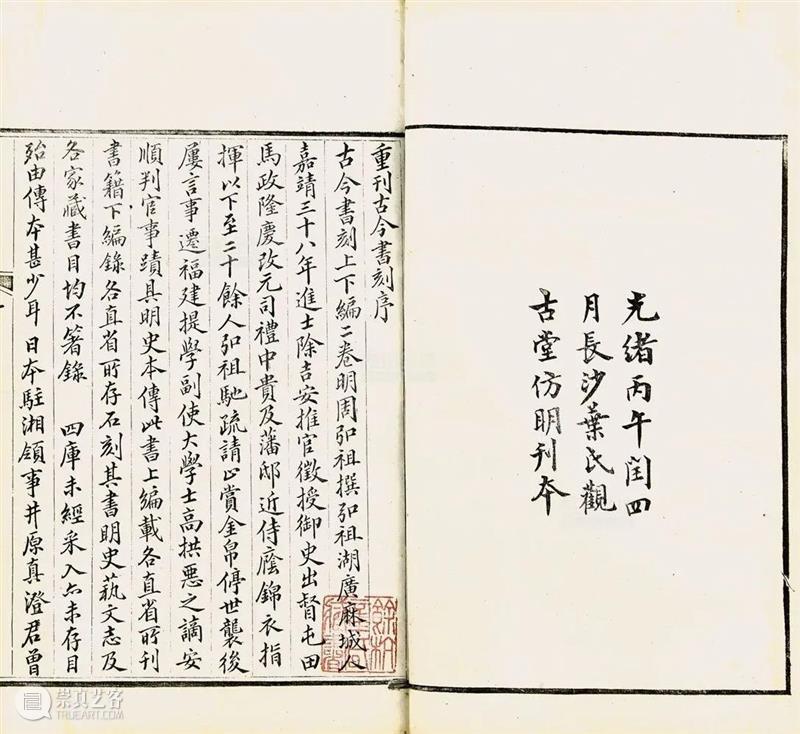 光緒丙午閏四
月長沙葉氏觀
古堂仿明刊本
重刊古今書刻序
古今書刻上下編二卷明周弘祖撰弘祖湖廣麻城人
嘉靖三十八年進士除吉安推官徵授御史出督屯田
馬政隆慶改元司禮中貴及藩邸近侍廕錦衣指
揮以下至二十餘人弘祖馳疏請止賞金帛停世襲後
屢言事遷福建提學副使大學士高拱惡之謫安
順判官事蹟具明史本傳此書上編載各直省所刊
書籍下編錄各直省所存石刻其書明史藝文志及
各家藏書目均不箸錄 四庫未經采入亦未存目
殆由傳本甚少耳日本駐湘領事井原真澄君曾
崇真艺客
TRUEART.COM